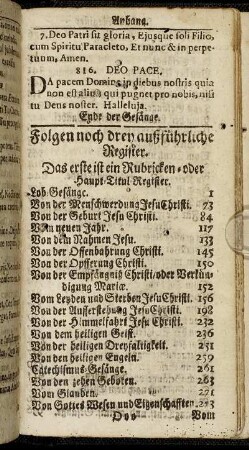 Anhang.
7. Deo Patri sit gloria, Ejusque soli Filio,
cum Spiritu Paracleto, Et nunc & in perpe-
tuum, Amen.
816. DEO PACE.
DA pacem Domine in diebus nostris quia
non est alius qui pugnet pro nobis, nisi
tu Deus noster. Halleluja.
Ende der Gesänge.
Folgen noch drey außführliche
Register.
Das erste ist ein Rubricken-oder
Haupt-Titul Register.
Lob Gesänge. 1
Von der Menschwerdung Jesu Christi. 73
Von der Geburt Jesu Christi. 84
Vom neuen Jahr. 117
Von dem Nahmen Jesu. 133
Von der Offenbahrung Christi. 145
Von der Opfferung Christi. 150
Von der Empfängniß Christi/oder Verkün-
digung Mariæ. 152
Vom Leyden und Sterben Jesu Christi. 156
Von der Aufferstehung Jesu Christi. 198
Von der Himmelfahrt Jesu Christi. 232
Von dem heiligen Geist. 236
Von der heiligen Dreyfaltigkeit. 251
Von den heiligen Engeln. 259
Catechismus-Gesänge. 261
Von den zehen Geboten. 263
Vom Glauben. 271
Von Gottes Wesen und Eigenschafften. 273
Vom